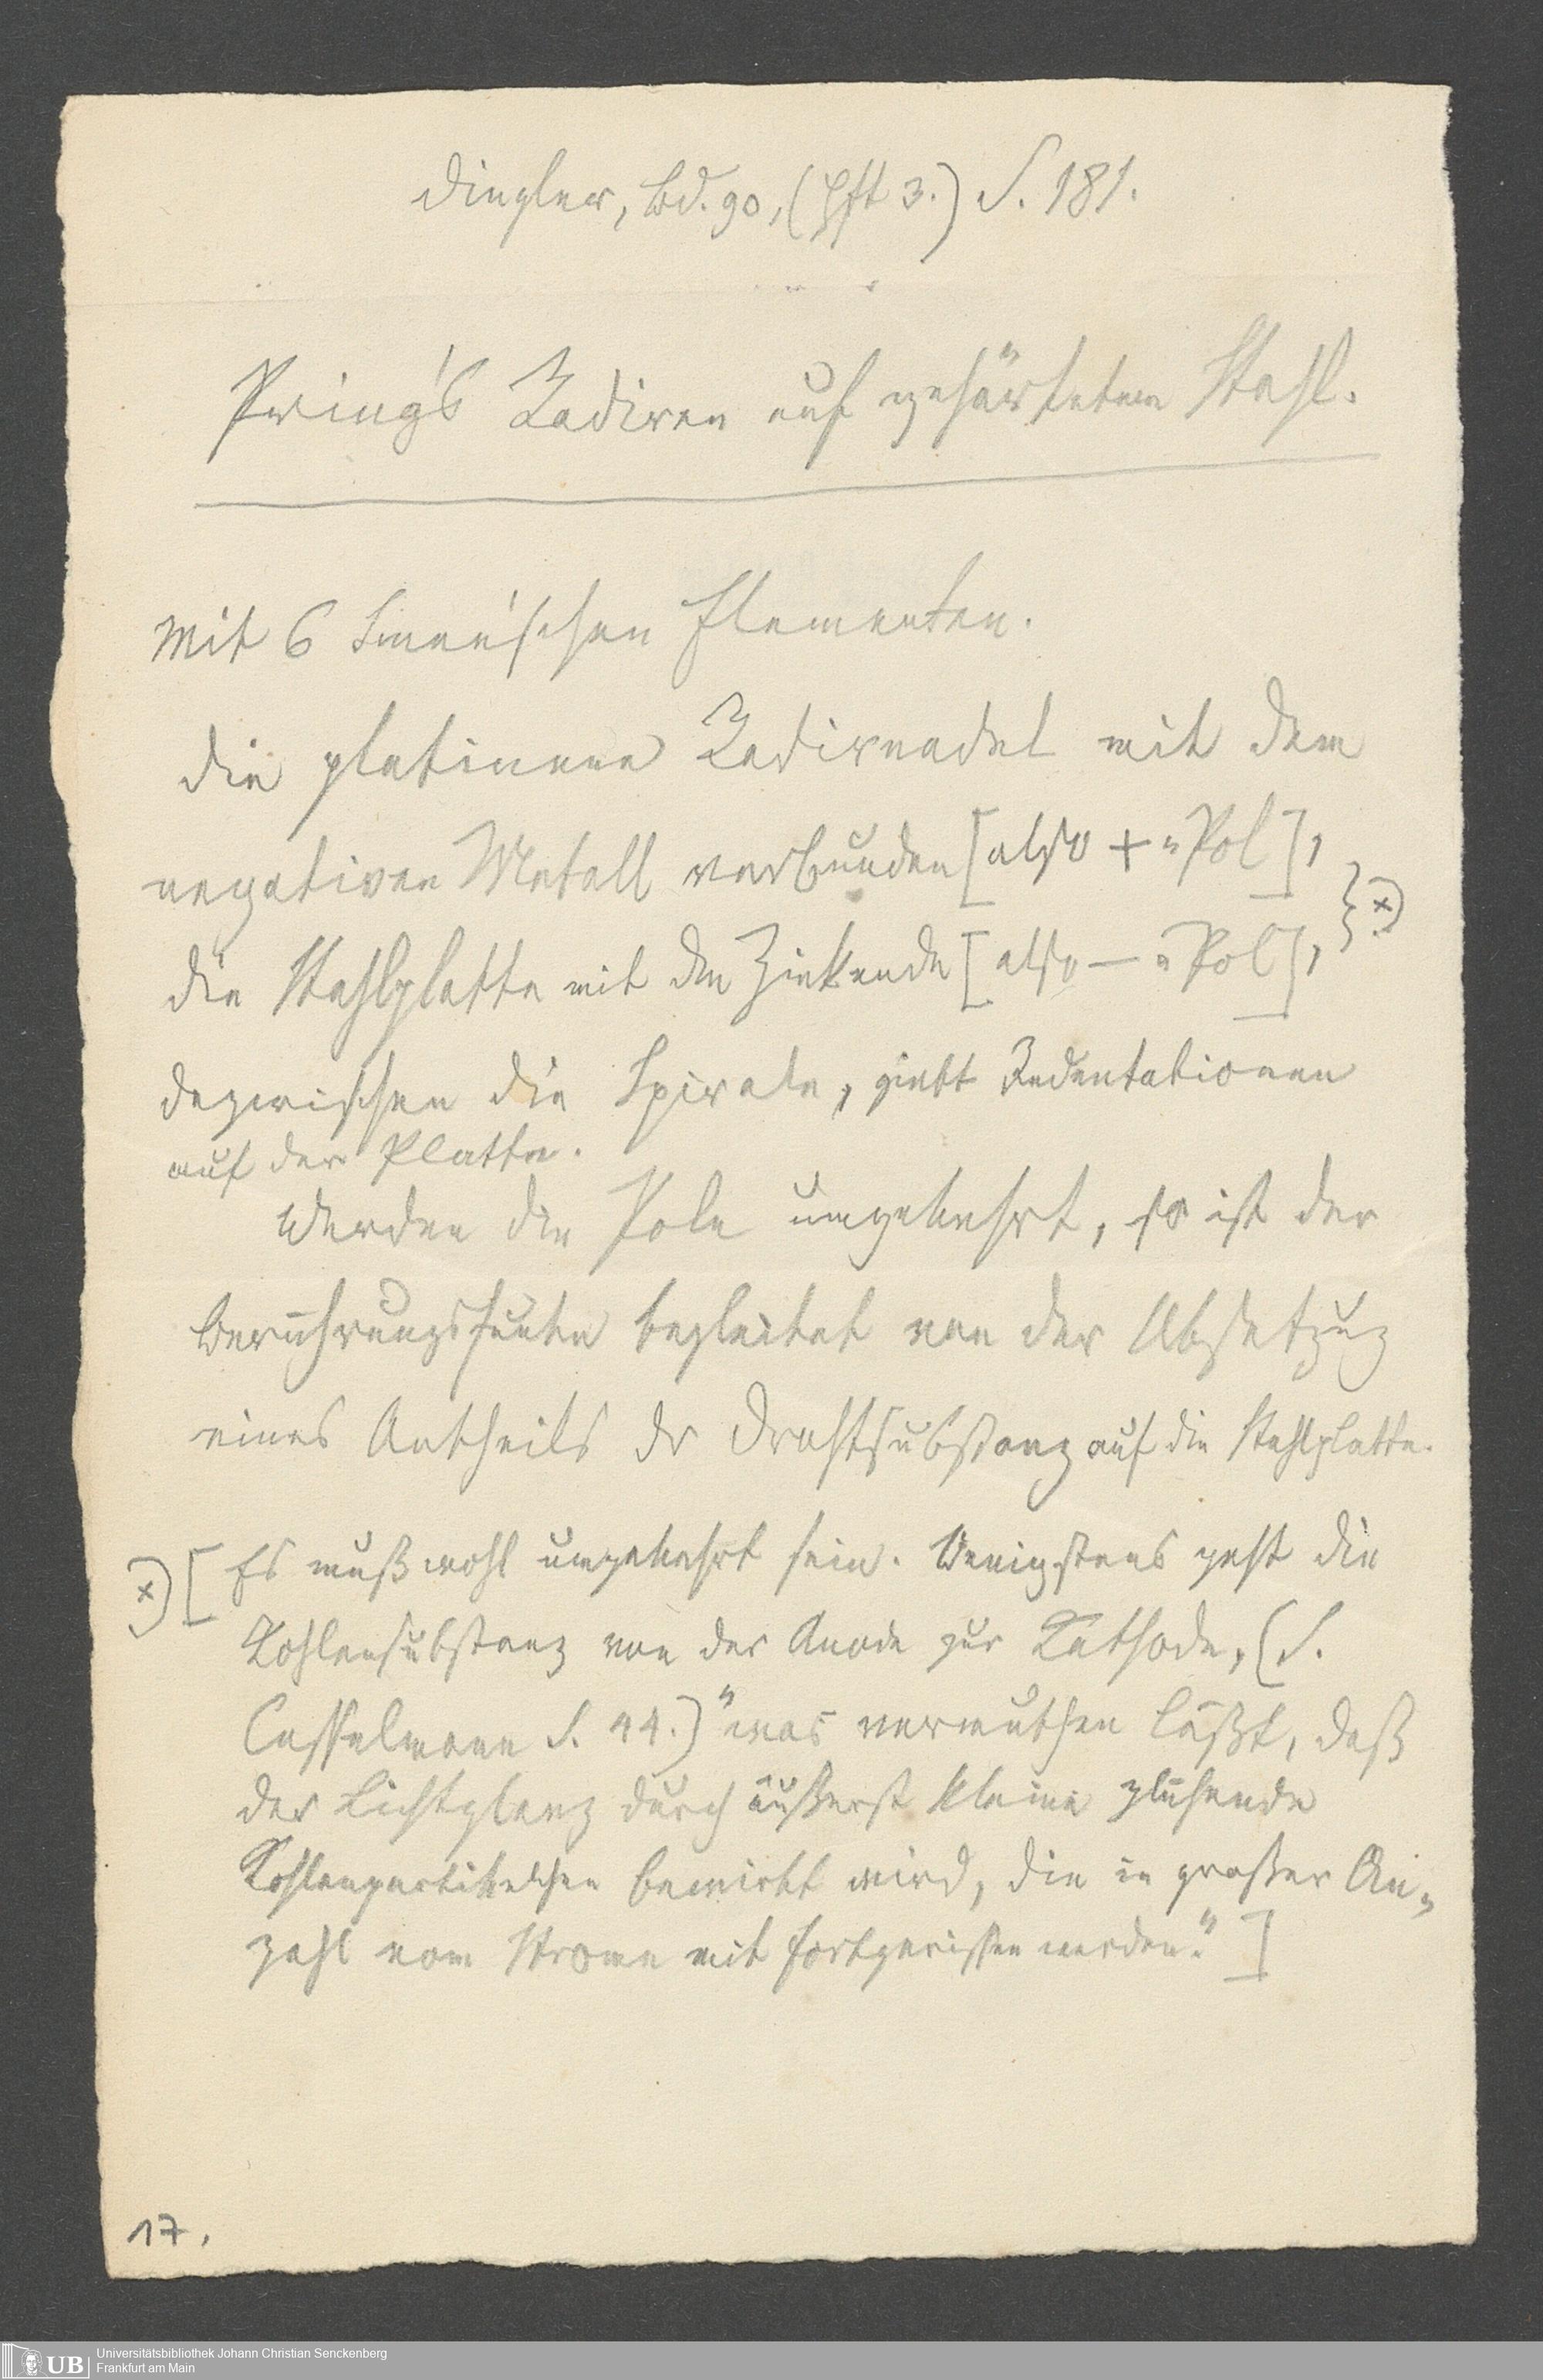 Dingler, Bd. 90, (Hft 3.) S. 181.
Pring's Radiren auf gehärtetem Stahl.
Mit 6 Smee'schen Elementen.
Die platinene Radirnadel mit dem
negativen Metall verbunden [also + "Pol],
die Stahlplatte mit dem Zinkende [also — "Pol],
} x)
dazwischen die Spirale, giebt Indentationen
auf der Platte.
Werden die Pole umgekehrt, so ist der
Berührungsfunke begleitet von der Absetzung
eines Antheils der Drahtsubstanz auf die Stahlplatte.
x) [Es muß wohl umgekehrt sein. Wenigstens geht die
Kohlensubstanz von der Anode zur Kathode, (S.
Casselmann S. 44.) "was vermuthen läßt, daß
der Lichtglanz durch äußerst kleine glühende
Kohlenpartikelchen bewirkt wird, die in großer An-
zahl vom Strome mit fortgerissen werden." ]
17.
UB
Universitätsbibliothek Johann Christian Senckenberg
Frankfurt am Main